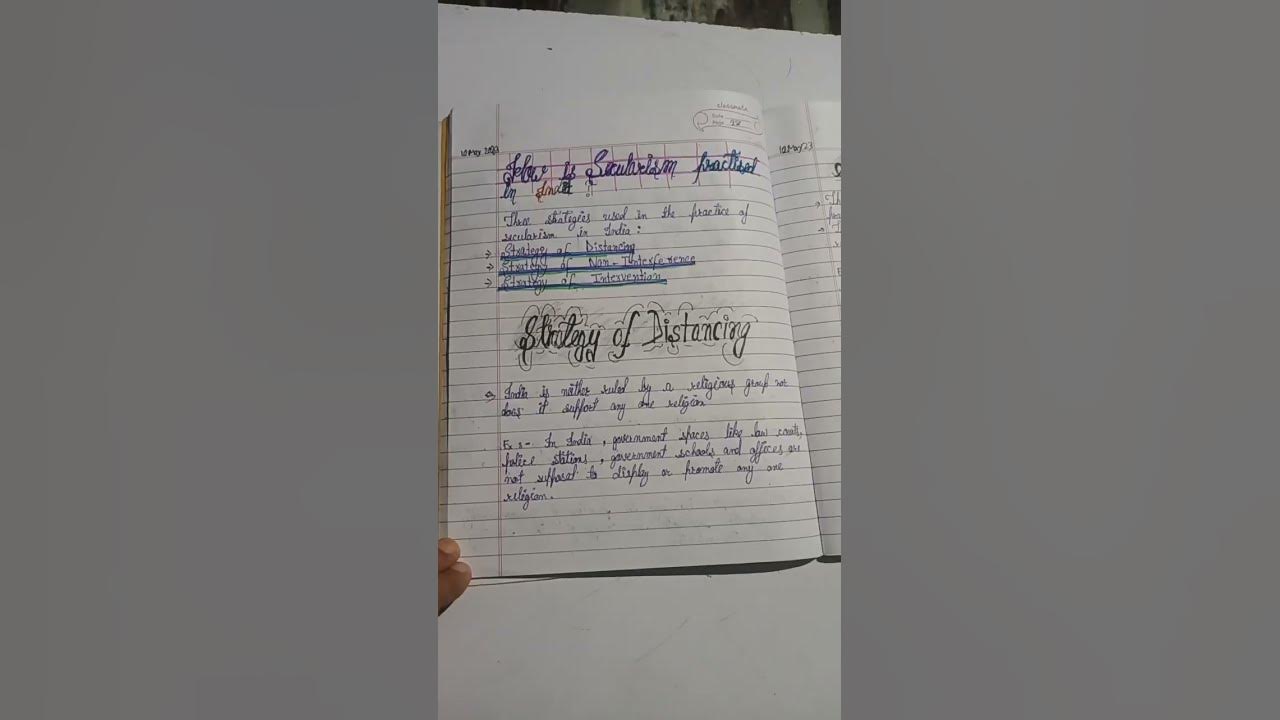 classmate
Date
Page
10 May 2023
How is Secularism practised
in India ?
Three strategies used in the practice of
secularism in India :
→ Strategy of Distancing
→ Strategy of Non-Interference
→ Strategy of Intervention
Strategy of Distancing
⇒ India is neither ruled by a religious group nor
does it support any one religion
Ex :- In India, government spaces like law courts,
police stations, government schools and offices are
not supposed to display or promote any one
religion.
10 May 23